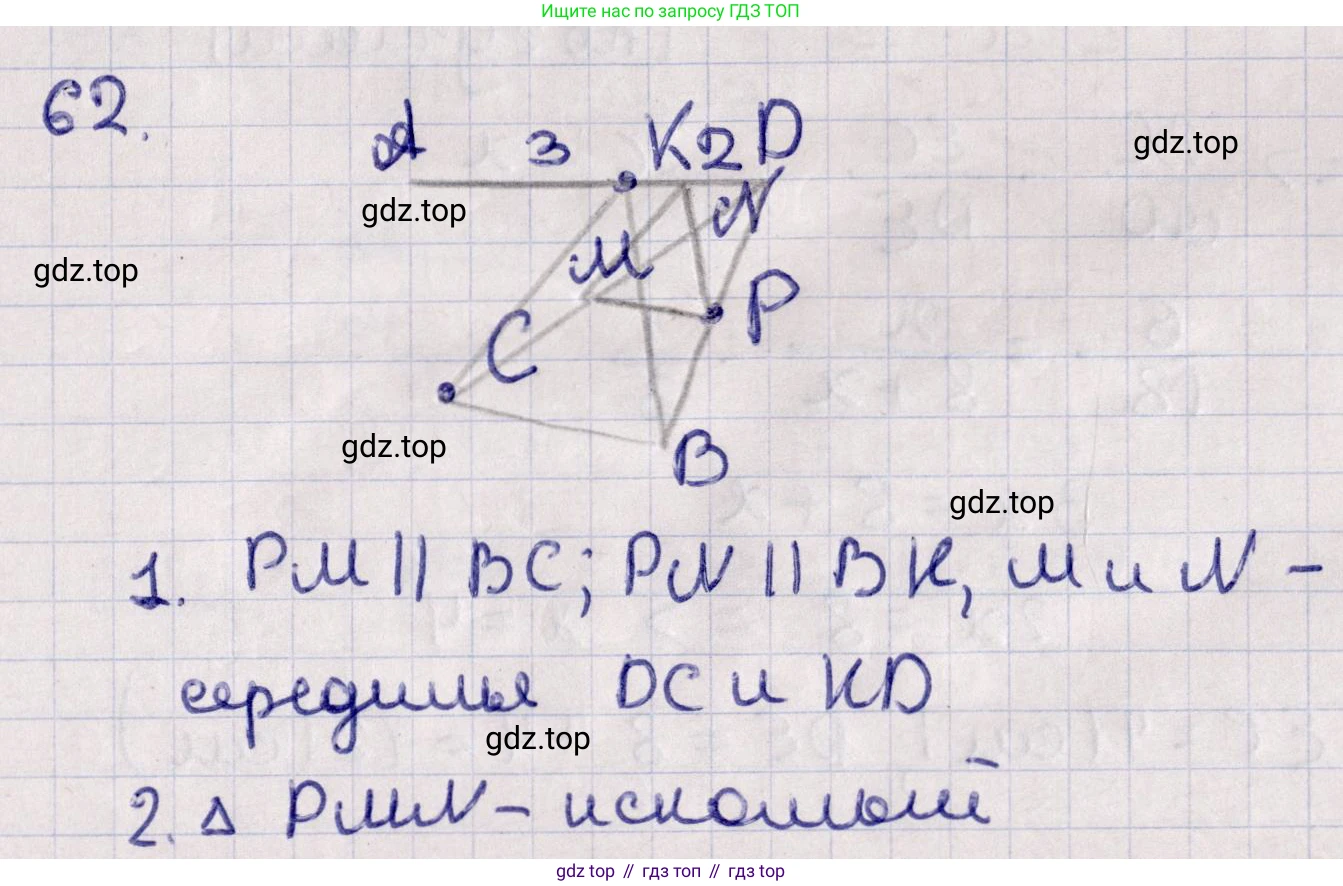 Ищите нас по запросу ГДЗ ТОП
62.
A 3 K 2 D
gdz.top
gdz.top
N
gdz.top
M
P
C
gdz.top
B
gdz.top
1. PM || BC; PN || BK, M и N –
середины DC и KD
gdz.top
2. Δ PMN – искомый
gdz top // гдз топ // gdz top